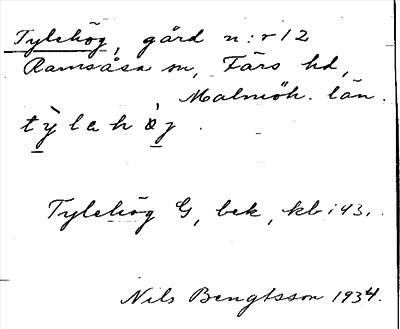 Tylehög, gård n:r 12
Ramsåsa sn, Färs hd,
Malmöh. län.
tỳlahög.
Tylehög G, bek, kb i 43,.
Nils Bengtsson 1934.